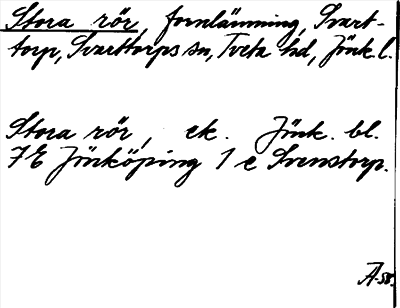 Stora rör, fornlämning, Svart-
torp, Svarttorps sn, Tveta hd, Jönk. l.
Stora rör, ek. Jönk. bl.
7E Jönköping 1 e Svenstorp.
A. 58.